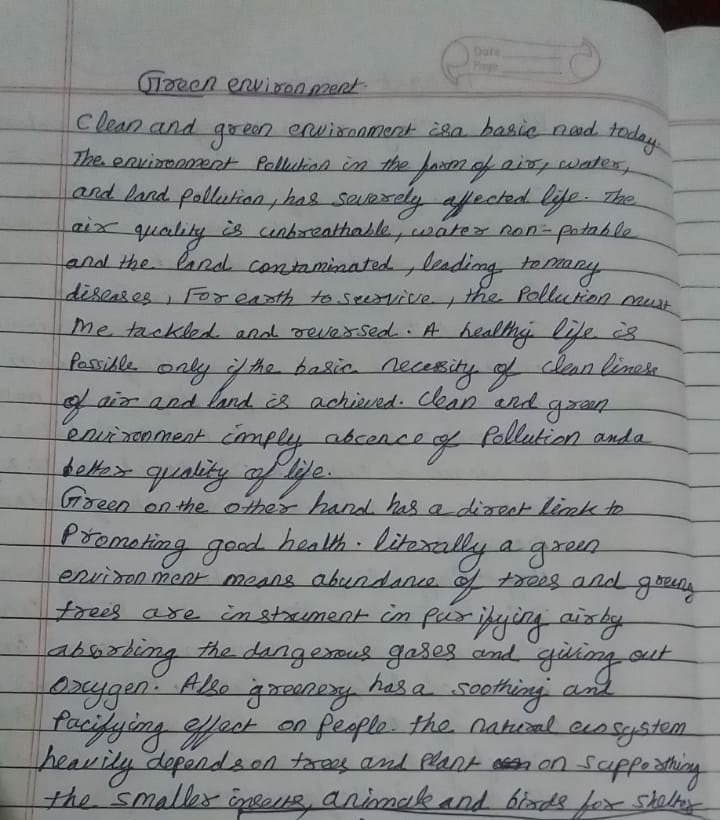 Date
Page
Green environment.
Clean and green environment is a basic need today.
The environment Pollution in the form of air, water,
and land pollution, has severely affected life. The
air quality is unbreathable, water non-potable
and the land contaminated, leading to many
diseases, For earth to survive, the Pollution must
me tackled and reversed. A healthy life is
Possible only if the basic necessity of cleanliness
of air and land is achieved. Clean and green
environment imply abscence of Pollution and a
better quality of life.
Green on the other hand has a direct link to
Promoting good health. literally a green
environment means abundance of trees and greeng
trees are instrument in purifying air by
absorbing the dangerous gases and giving out
Oxygen. Also greenery has a soothing and
Pacifying effect on People. the natural ecosystem
heavily depends on trees and Plant on supporthing
the smaller insects, animals and birds for shelter